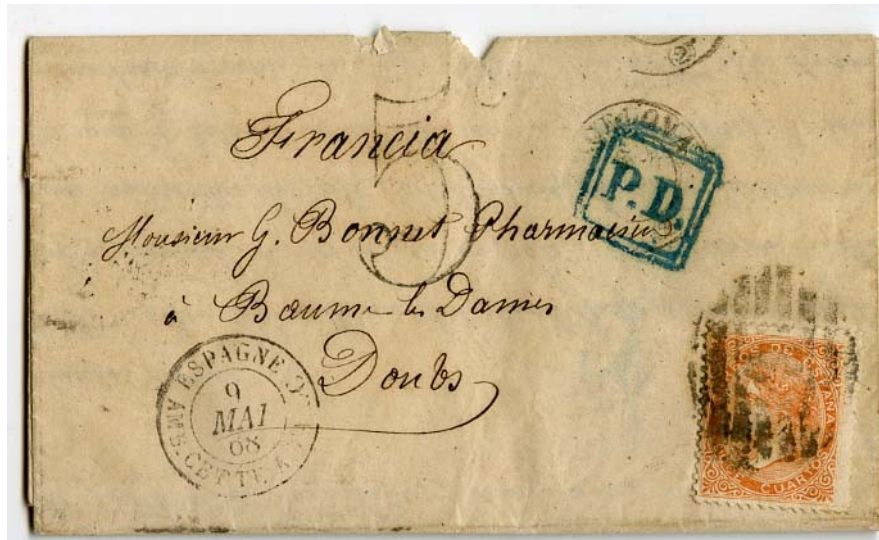 Francia
5
P.D.
Monsieur G. Bonnet Pharmacien
à Baume les Dames
Doubs
ESPAGNE
9
MAI
68
AMB. CETTE
CUARTOS